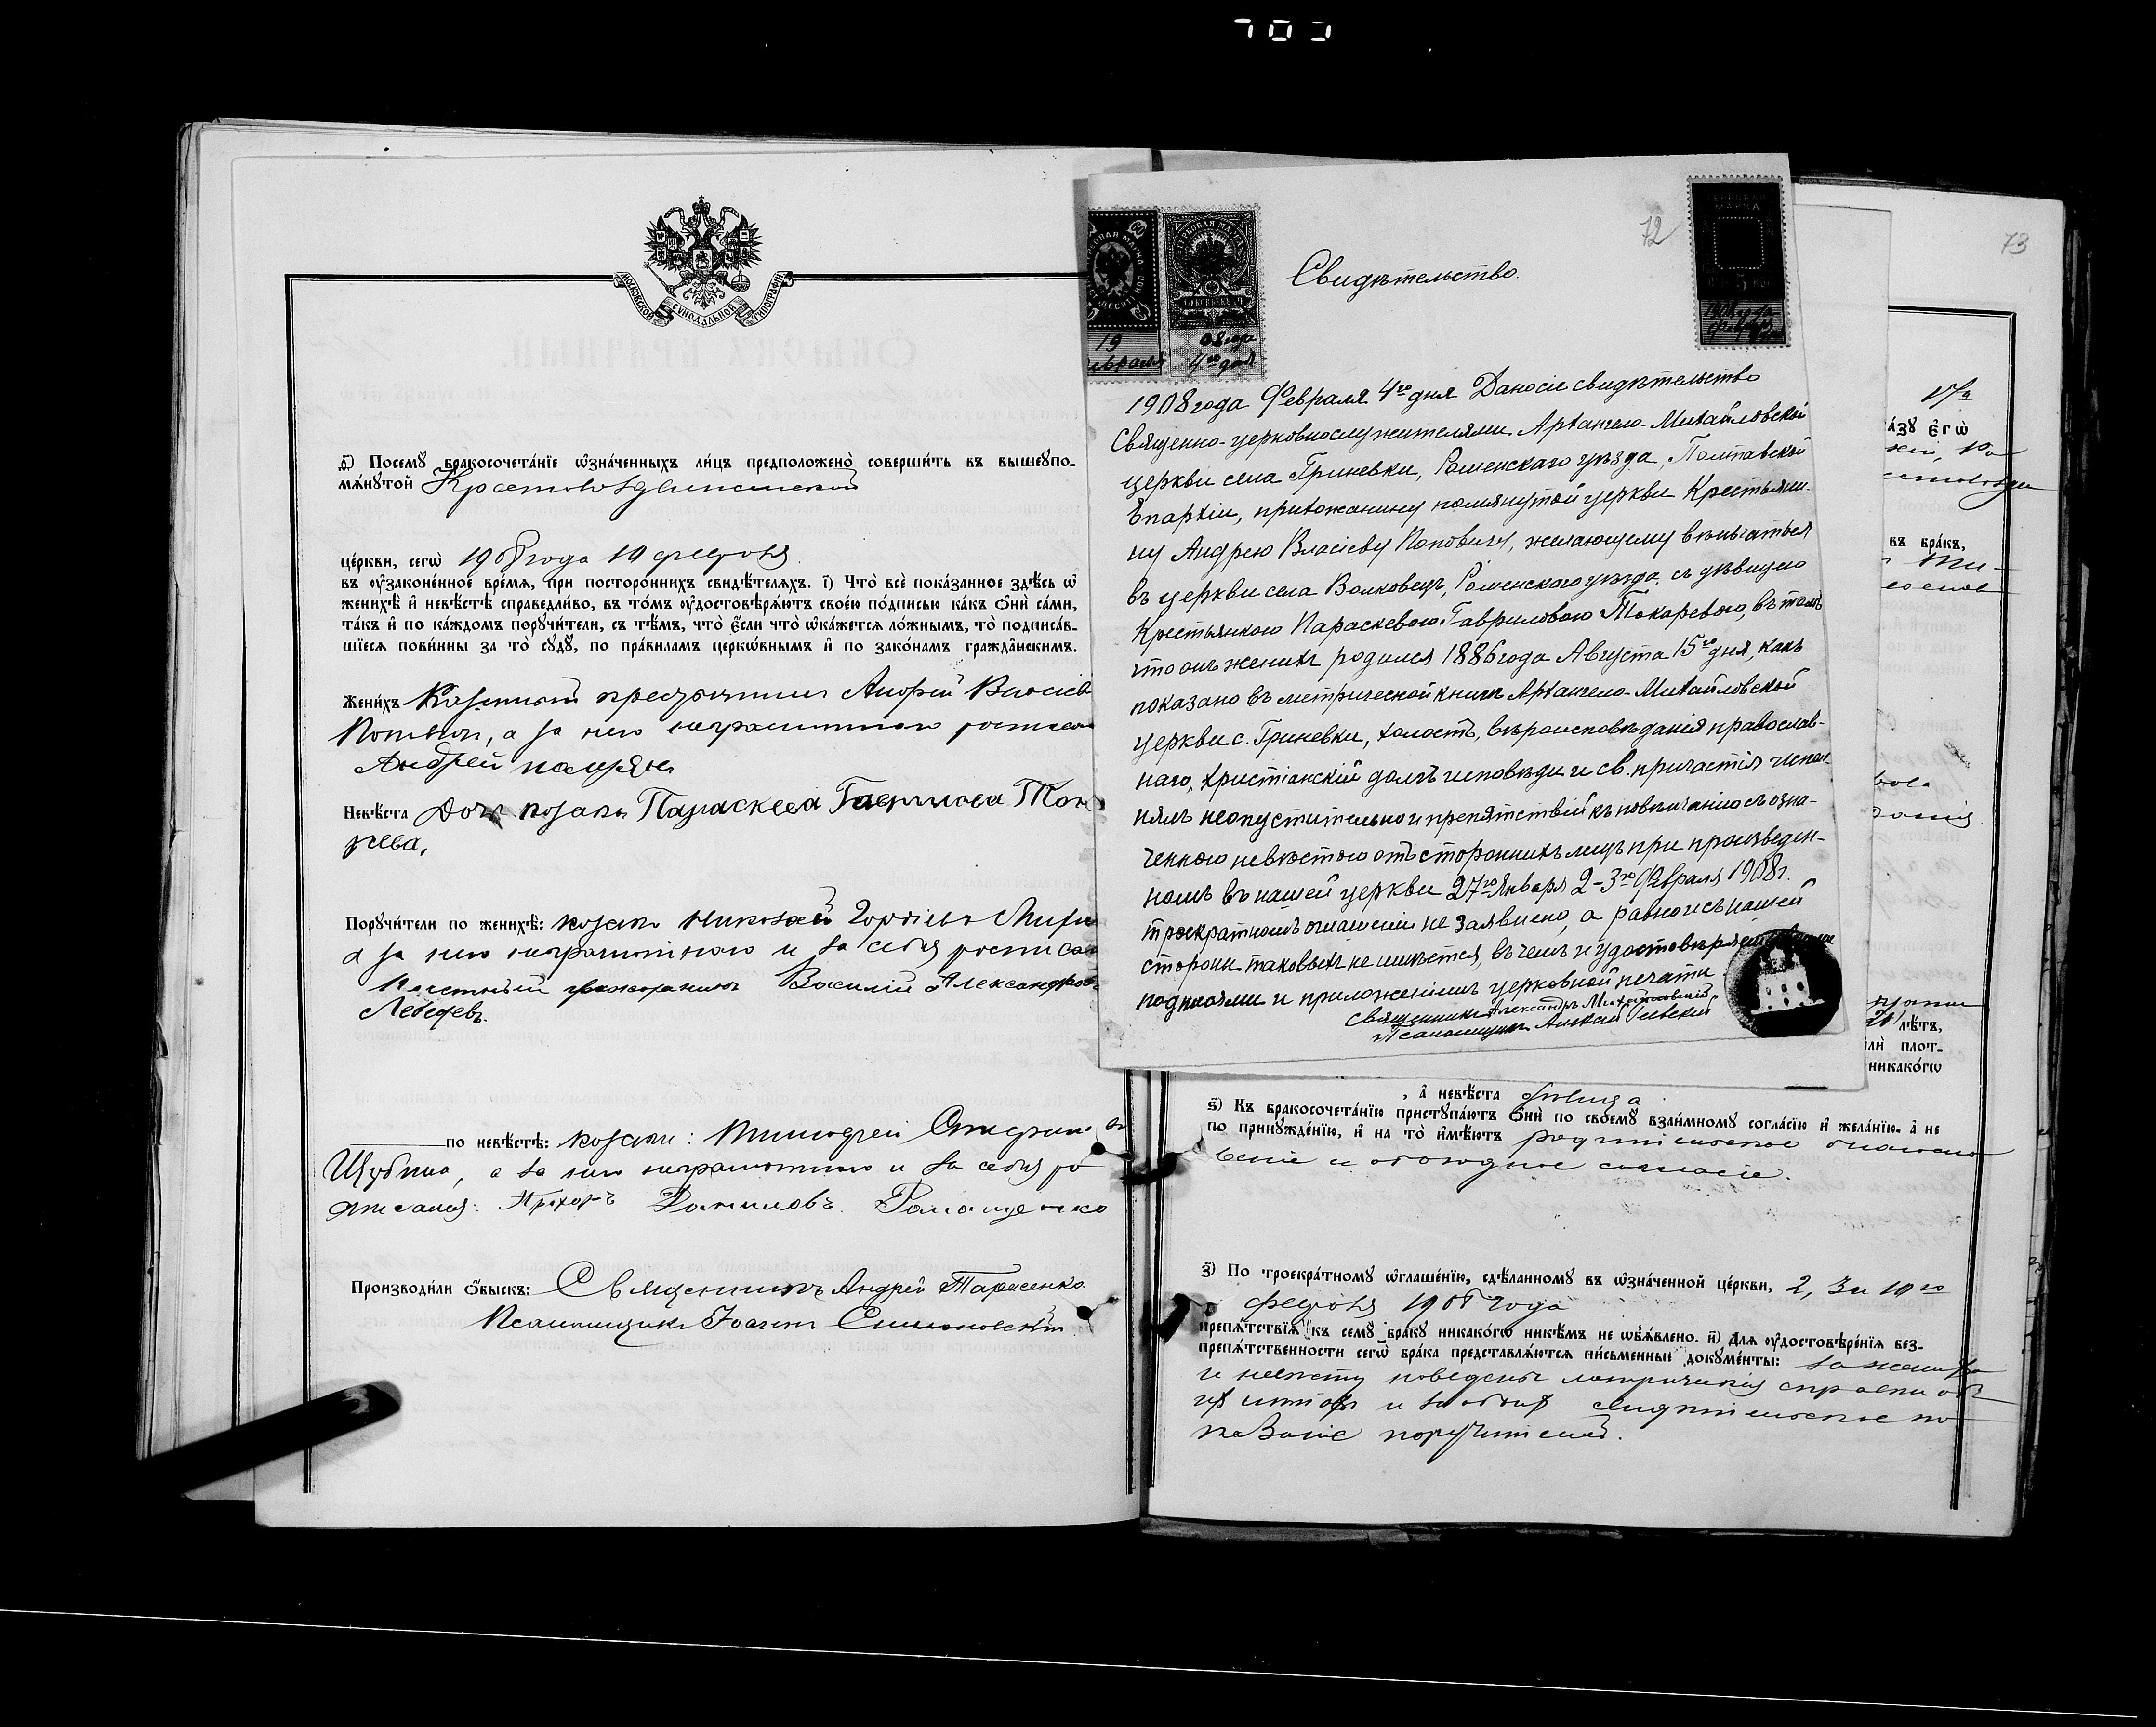 МОСКОВСКОЙ СѴНОДАЛЬНОЙ ТИПОГРАФІИ
Посемꙋ бракосочета́нїе ѡ҆зна́ченныхъ ли́цъ предположено̀ соверши́ть въ вышеꙋпо-
мѧ́нꙋтой Крестовоздвиженской
це́ркви, сегѡ̀ 1908 года 10 февраля
въ ᲂу҆законе́нное вре́мѧ, при посторо́ннихъ свидѣ́телѧхъ. і҃) Что̀ всѐ пока́занное здѣ́сь ѡ҆
женихѣ̀ и҆ невѣ́стѣ справедли́во, въ то́мъ ᲂу҆достовѣрѧ́ютъ свое́ю по́дписью ка́къ ѻ҆нѝ са́ми,
та́къ и҆ по ка́ждомъ порꙋчи́тели, съ тѣ́мъ, что̀ є҆́сли что̀ ѡ҆ка́жетсѧ ло́жнымъ, то̀ подписа́в-
шїесѧ пови́нны за то̀ сꙋдꙋ̀, по пра́виламъ церкѡ́внымъ и҆ по зако́намъ гражда̑нскимъ.
Жени́хъ Казенный крестьянин Андрей Власіев
Попович, а за него неграмотного росписался
Андрей
Невѣ́ста Дочь козака Параскева Гаврилова Тока
рева,
Порꙋчи́тели по женихѣ̀: козаки Николай Гордіев
а за него неграмотного и за себя росписался
Почетный гражданин Василій Александров
Лебедевъ.
по невѣ́стѣ: козаки: Тимофей
Шубка, а за него неграмотного и за себя ро
списался: Прохоръ Даниловъ Ромащенко
Производи́ли ѻ҆́быскъ: Священникъ Андрей Тарасенко
Псаломщикъ Іоаннъ Симоновскій
72
Свидѣтельство.
19 08 года
февраля 4го дня
1908 года
1908 года Февраля 4го дня Дано сіе свидѣтельство
Священно-церковнослужителями Архангело-Михайловской
церкви села Гриневки, Роменскаго уѣзда, Полтавской
Епархіи, прихожанину помянутой церкви Крестьяни-
ну Андрею Власіеву Поповичу, желающему вѣнчаться
въ церкви села Волковецъ, Роменскаго уѣзда, съ дѣвицею
Крестьянкою Параскевою Гавриловою Токаревою, въ томъ
что онъ женихъ родился 1886 года Августа 15го дня, какъ
показано въ метрической книгѣ Архангело-Михайловской
церкви с. Гриневки, холостъ, вѣроисповѣданія православ-
наго, христіанскій долгъ исповѣди и св. причастія испол-
нялъ неопустительно и препятствій къ повѣнчанію съ озна-
ченною невѣстою отъ стороннихъ лицъ при произведен-
номъ въ нашей церкви 27го Января 2-3го Февраля 1908 г.
троекратномъ оглашеніи не заявлено, а равно и съ нашей
стороны таковыхъ не имѣется, въ чемъ и удостовѣряемъ
подписями и приложеніемъ церковной печати
Священникъ Александръ Михайловскій
Псаломщикъ Алексій
73
въ бра́къ,
лѣ́тъ,
никако́гѡ
, а҆ невѣ́ста дѣвица
ѕ҃) Къ бракосочета́нїю пристꙋпа́ютъ ѻ҆нѝ по своемꙋ̀ взаи́мномꙋ согла́сїю и҆ жела́нїю. а҆ не
по принꙋжде́нїю, и҆ на то̀ и҆мѣ́ютъ родительское благосло
веніе и обоюдное согласіе.
з҃) По троекра́тномꙋ ѡ҆глаше́нїю, сдѣ́ланномꙋ въ ѡ҆зна́ченной це́ркви, 2, 3 и 10го
февраля 1908 года
препѧ́тствїѧ къ семꙋ̀ бра́кꙋ никако́гѡ никѣ́мъ не ѡ҆б̾ѧ́влено. и҃) Длѧ ᲂу҆достовѣре́нїѧ без-
препѧ́тственности сегѡ̀ бра́ка представлѧ́ютсѧ пи́сьменные докꙋме́нты: за жениха
и невѣсту поведены метрическія справки объ
ихъ лѣтахъ и за обоих свидѣтельское по
казаніе поручителей.